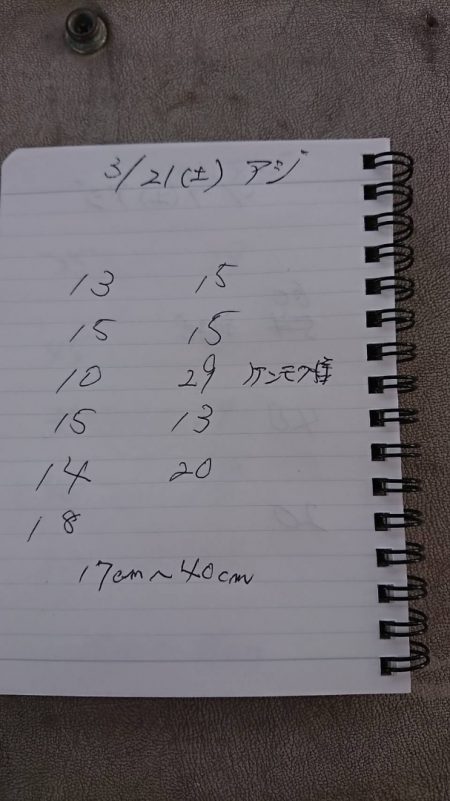 3/21(土) アジ
13 15
15 15
10 29 ケンモツ
15 13
14 20
18
17cm~40cm